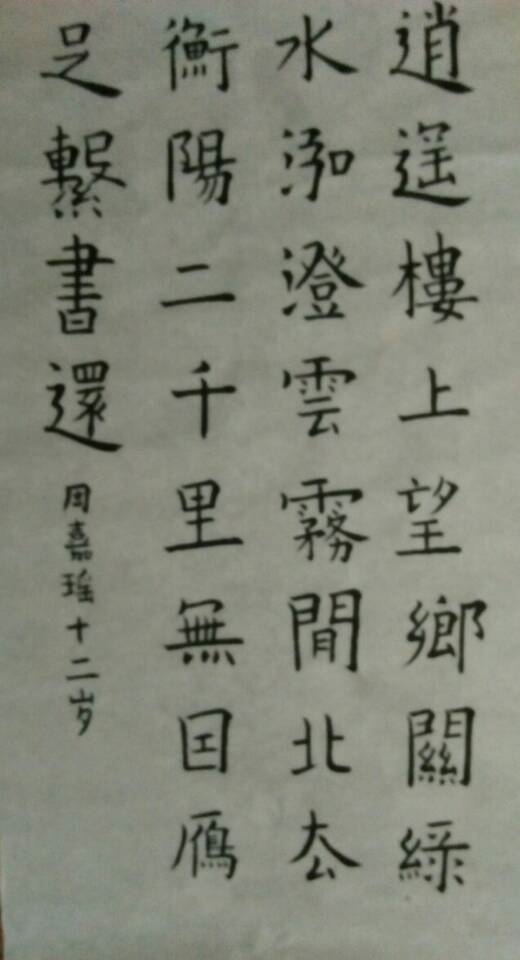 逍遥樓上望鄉關綠
水泓澄雲霧間北厺
衡陽二千里無囙鴈
足繫書還
周嘉瑶十二岁